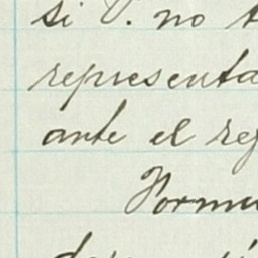 si V. no t
representa
ante el reg
Formu